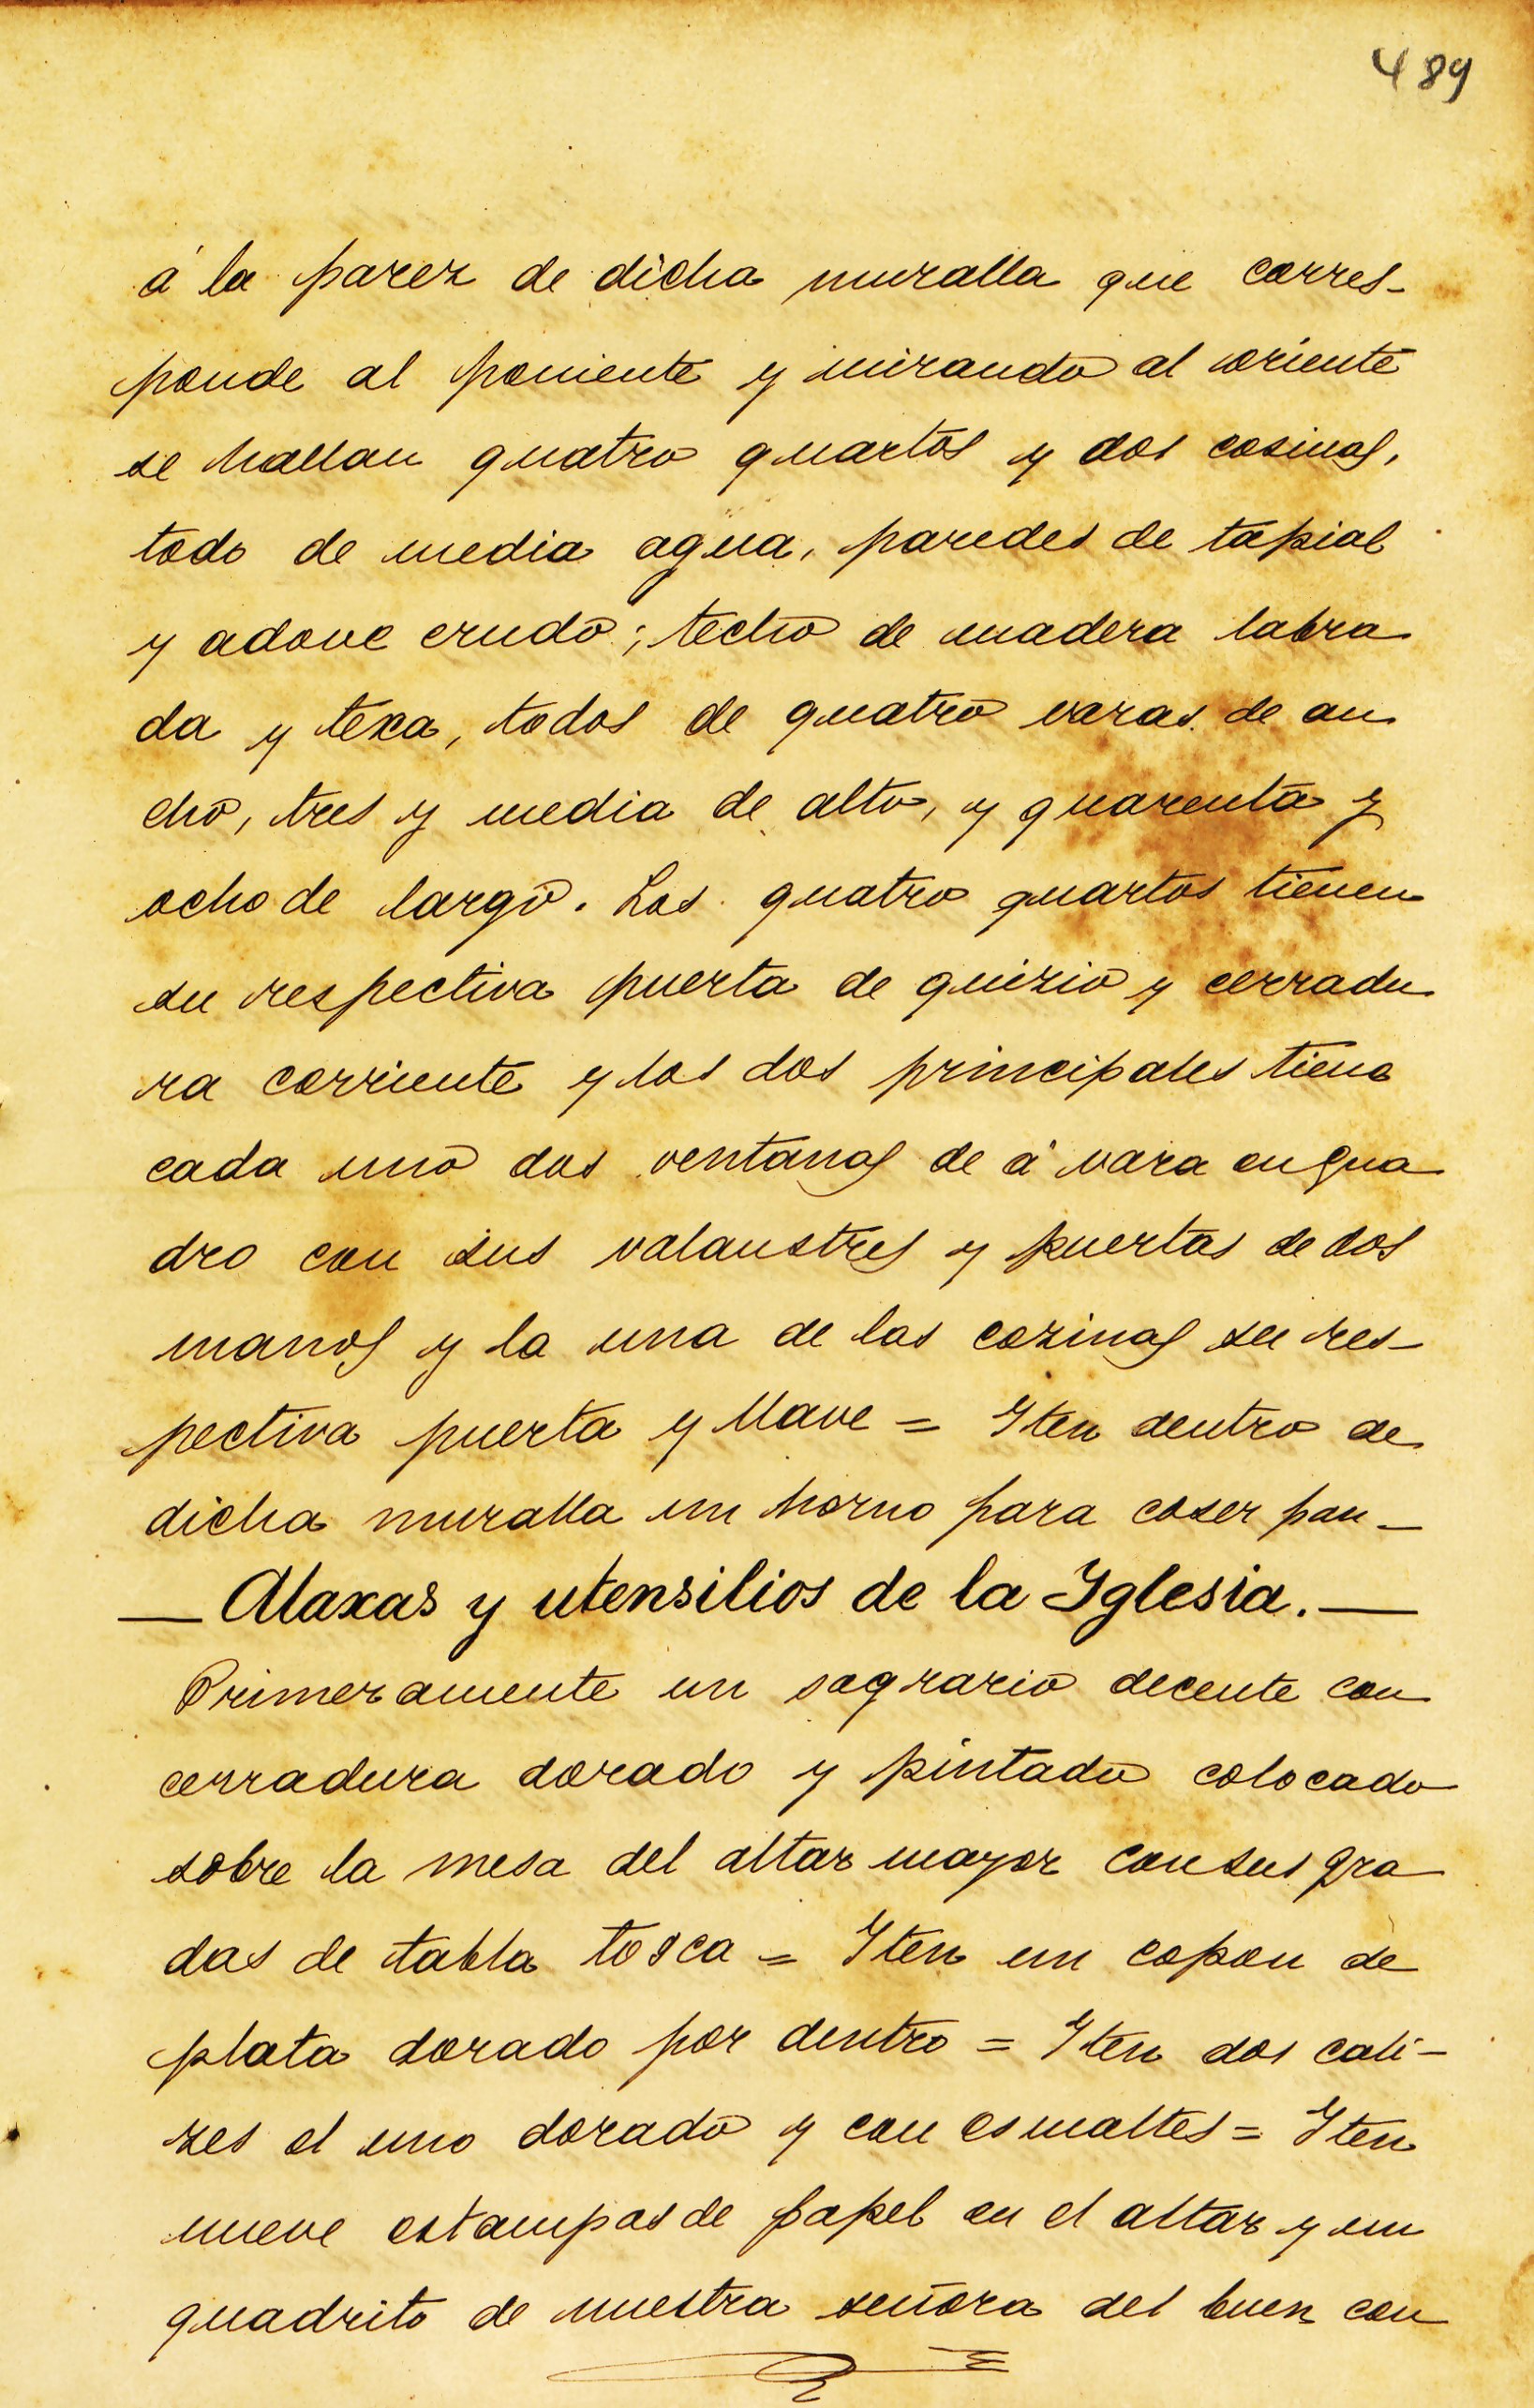 489
á la parez de dicha muralla que corres-
ponde al poniente y mirando al oriente
se hallan quatro quartos y dos cosinas,
todo de media agua, paredes de tapial
y adove crudo; techo de madera labra
da y texa, todos de quatro varas de an
cho, tres y media de alto, y quarenta y
ocho de largo. Los quatro quartos tienen
su respectiva puerta de quizio y cerradu
ra corriente y los dos principales tiene
cada uno dos ventanas de á vara en qua
dro con sus valaustres y puertas de dos
manos y la una de las cozinas su res-
pectiva puerta y llave = Iten dentro de
dicha muralla un horno para coser pan -
— Alaxas y utensilios de la Iglesia. —
Primeramente un sagrario decente con
cerradura dorado y pintado colocado
sobre la mesa del altar mayor con sus gra
das de tabla tosca = Iten un copon de
plata dorado por dentro = Iten dos cali-
zes el uno dorado y con esmaltes = Iten
nueve estampas de papel en el altar y un
quadrito de nuestra señora del buen con